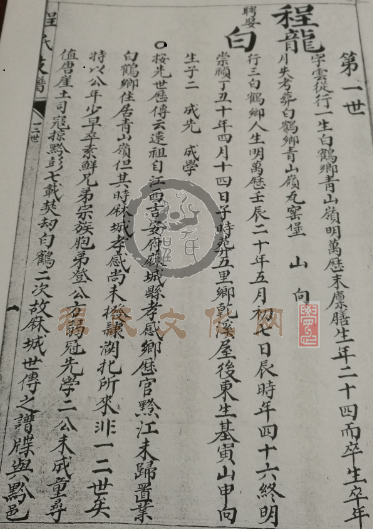 第一世
程龍
字雲從行一生白鶴鄉青山嶺明萬歷末廪膳生年二十四而卒生卒年
月失考葬白鶴鄉青山嶺瓦窑堡 山 向
聘婜
白
行三白鶴鄉人生明萬歷壬辰二十年五月初 日辰時年四十六終明
崇禎丁丑十年四月十四日子時葬五里鄉乾溪屋後東生基寅山申向
生子二 成先 成學
按先世歷傳云遠祖自江西吉安府麻城縣孝感鄉歷官黔江未歸置業
白鶴鄉住居青山嶺但其時麻城孝感尚未撥隸湖北所來非一二世矣
特以公年少早卒素鮮兄弟宗族胞弟登公方弱冠先學二公未成童尋
值唐崖土司寇掠黔彭七載英劫白鶴二次故麻城世傳之譜牒與黔邑
程氏 譜
一世